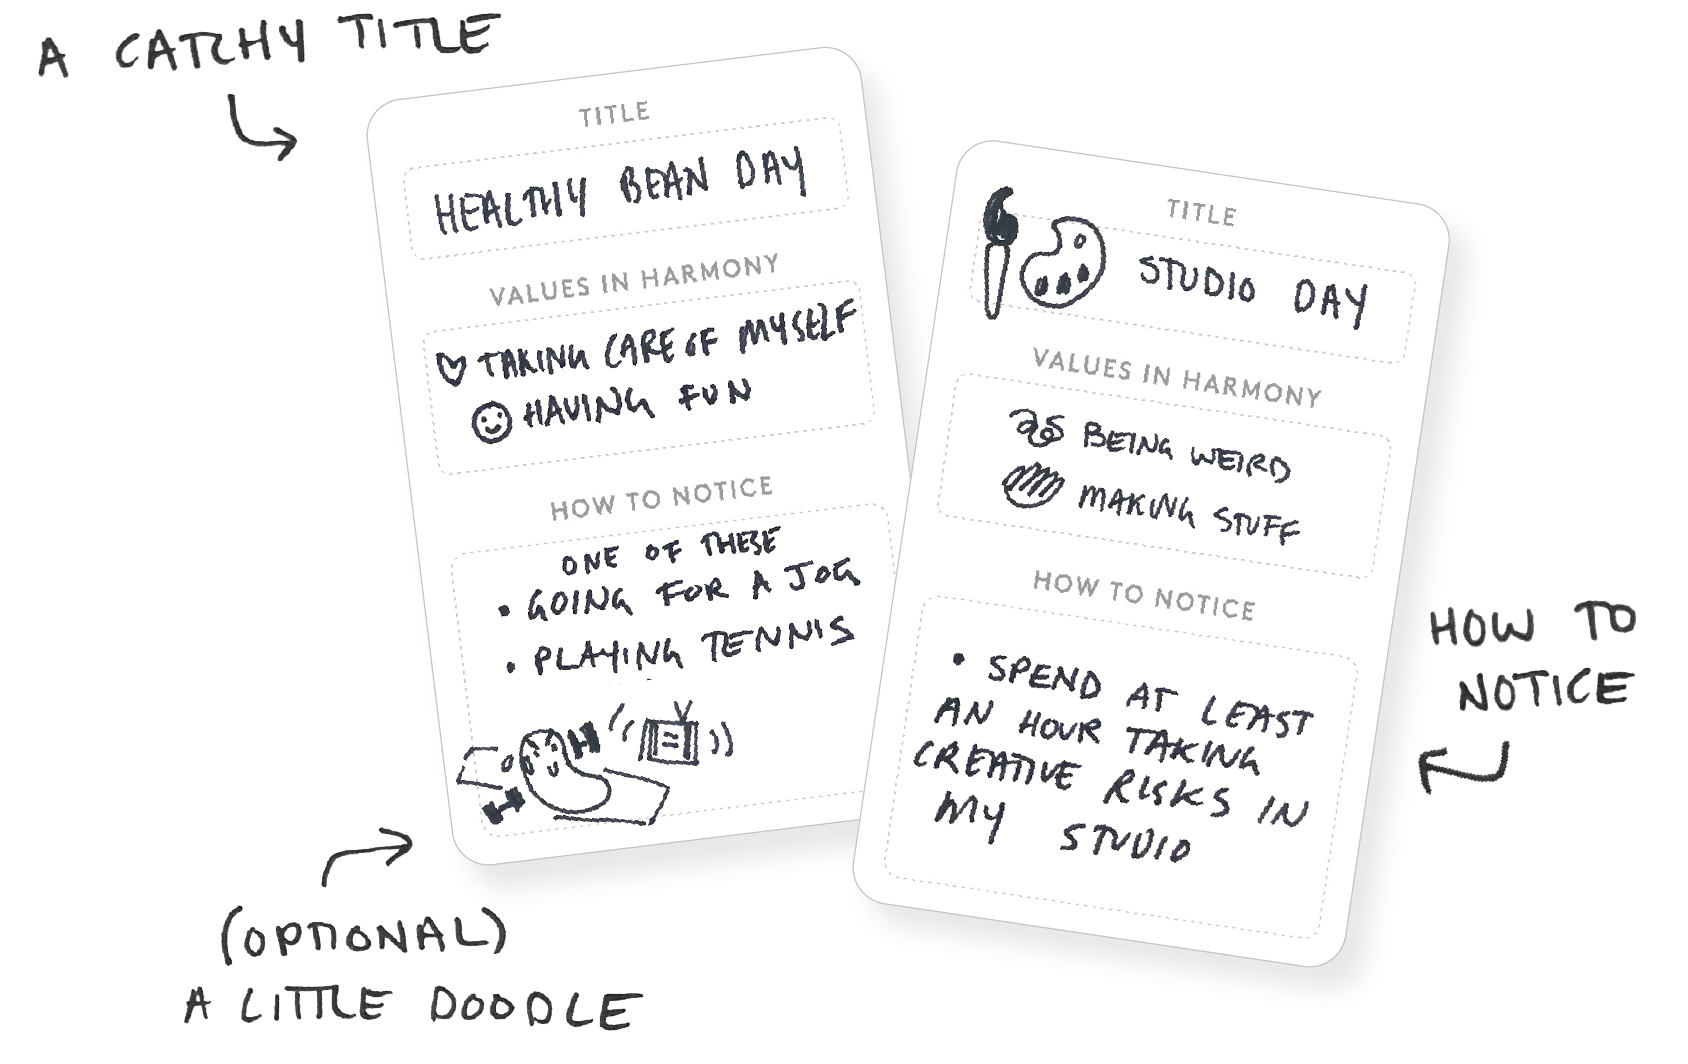 A CATCHY TITLE
TITLE
HEALTHY BEAN DAY
VALUES IN HARMONY
TAKING CARE OF MYSELF
HAVING FUN
HOW TO NOTICE
ONE OF THESE
• GOING FOR A JOG
• PLAYING TENNIS
(OPTIONAL)
A LITTLE DOODLE
TITLE
STUDIO DAY
VALUES IN HARMONY
BEING WEIRD
MAKING STUFF
HOW TO NOTICE
• SPEND AT LEAST
AN HOUR TAKING
CREATIVE RISKS IN
MY STUDIO
HOW TO
NOTICE